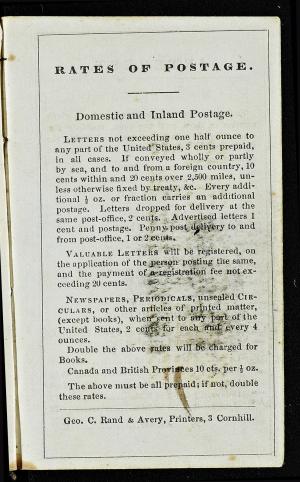 RATES OF POSTAGE.
Domestic and Inland Postage.
LETTERS not exceeding one half ounce to
any part of the United States, 3 cents prepaid,
in all cases. If conveyed wholly or partly
by sea, and to and from a foreign country, 10
cents within and 20 cents over 2,500 miles, un-
less otherwise fixed by treaty, &c. Every addi-
tional ½ oz. or fraction carries an additional
postage. Letters dropped for delivery at the
same post-office, 2 cents. Advertised letters 1
cent and postage. Penny post delivery to and
from post-office, 1 or 2 cents.
VALUABLE LETTERS will be registered, on
the application of the person posting the same,
and the payment of a registration fee not ex-
ceeding 20 cents.
NEWSPAPERS, PERIODICALS, unsealed CIR-
CULARS, or other articles of printed matter,
(except books), when sent to any part of the
United States, 2 cents for each and every 4
ounces.
Double the above rates will be charged for
Books.
Canada and British Provinces 10 cts. per ½ oz.
The above must be all prepaid; if not, double
these rates.
Geo. C. Rand & Avery, Printers, 3 Cornhill.